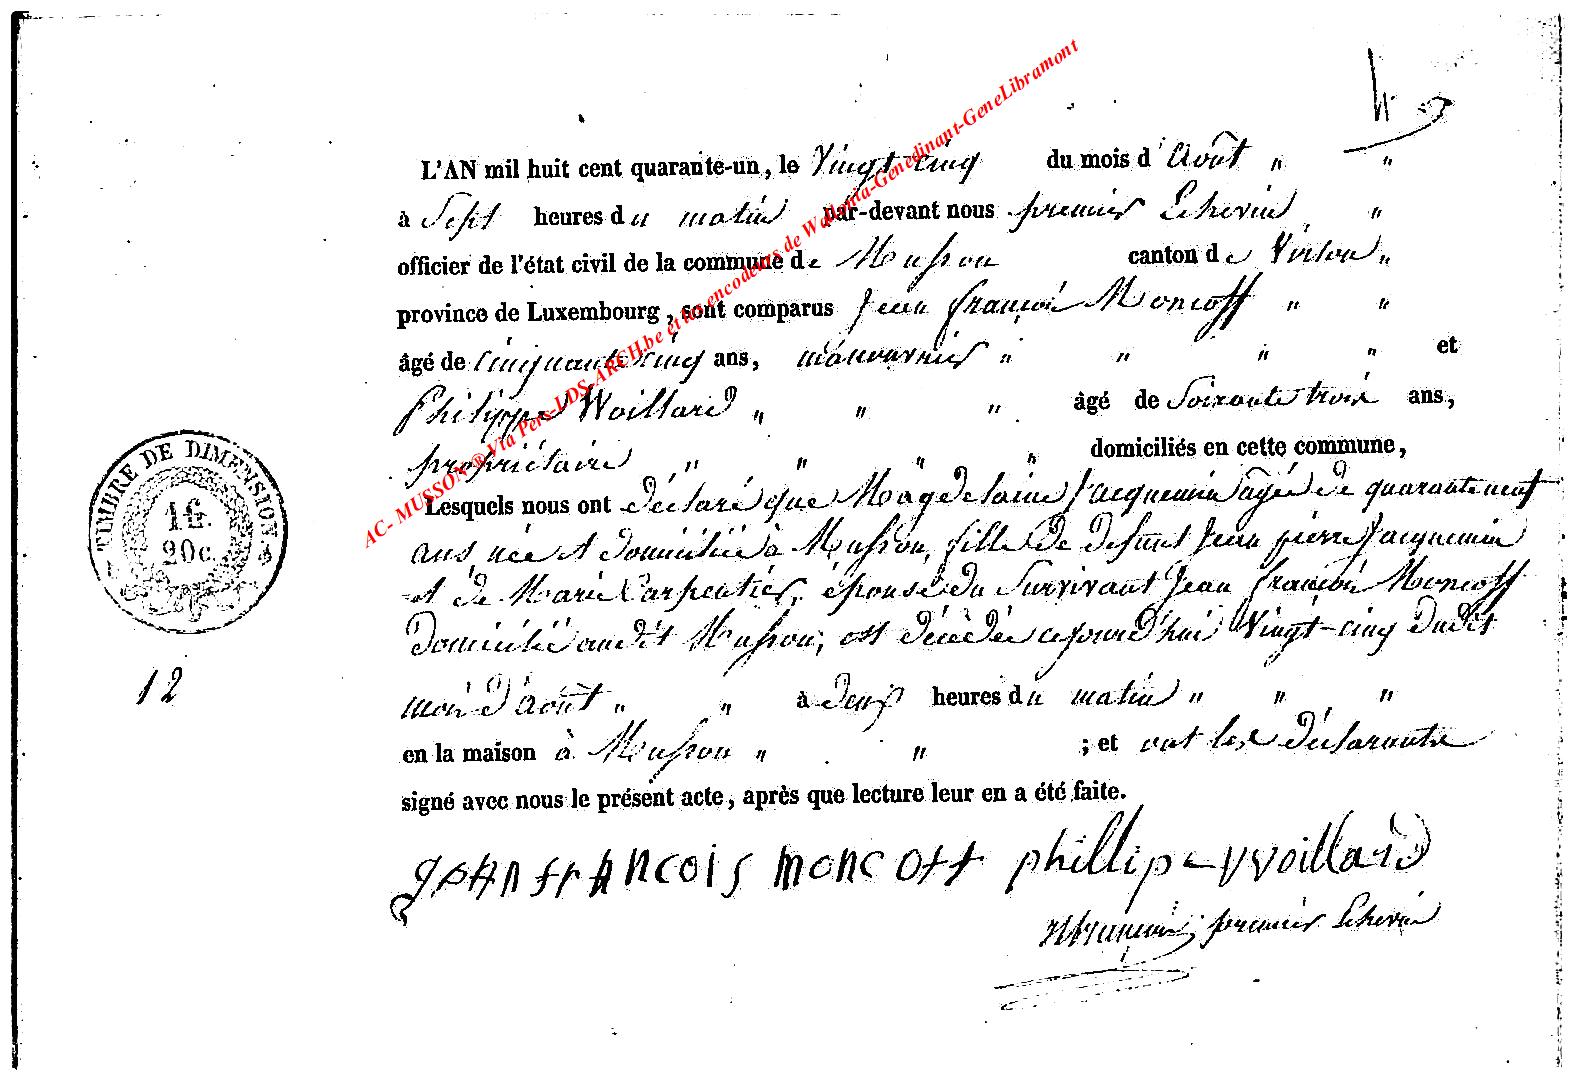 L'AN mil huit cent quarante-un, le Vingt cinq du mois d'Août " "
à Sept heures du matin par-devant nous premier Echevin "
officier de l'état civil de la commune de Musson canton de Virton "
province de Luxembourg, sont comparus Jean françois Moncoff " "
âgé de cinquante cinq ans, manouvrier " " " " et
Philippe Woillard " " " âgé de Soixante trois ans,
propriétaire " " " " domiciliés en cette commune,
Lesquels nous ont déclaré que Magdelaine Jacquemin agée de quarante neuf
ans, née et domiciliée à Musson, fille de defunt Jean pierre Jacquemin
et de Marie Carpentier, épouse du Survivant Jean françois Moncoff
domicilié audit Musson, est décédée cejourd'hui Vingt-cinq dudit
mois d'août " " à deux heures du matin " " "
en la maison à Musson " " ; et ont les déclarants
signé avec nous le présent acte, après que lecture leur en a été faite.
jean francois moncoff phillipe Woillard
premier Echevin
TIMBRE DE DIMENSION
1 fr.
20 c.
12
AC- MUSSON ® Via Pers-LDS-ARCH.be et les encodeurs de Wallonia-Genedinant-GeneLibramont